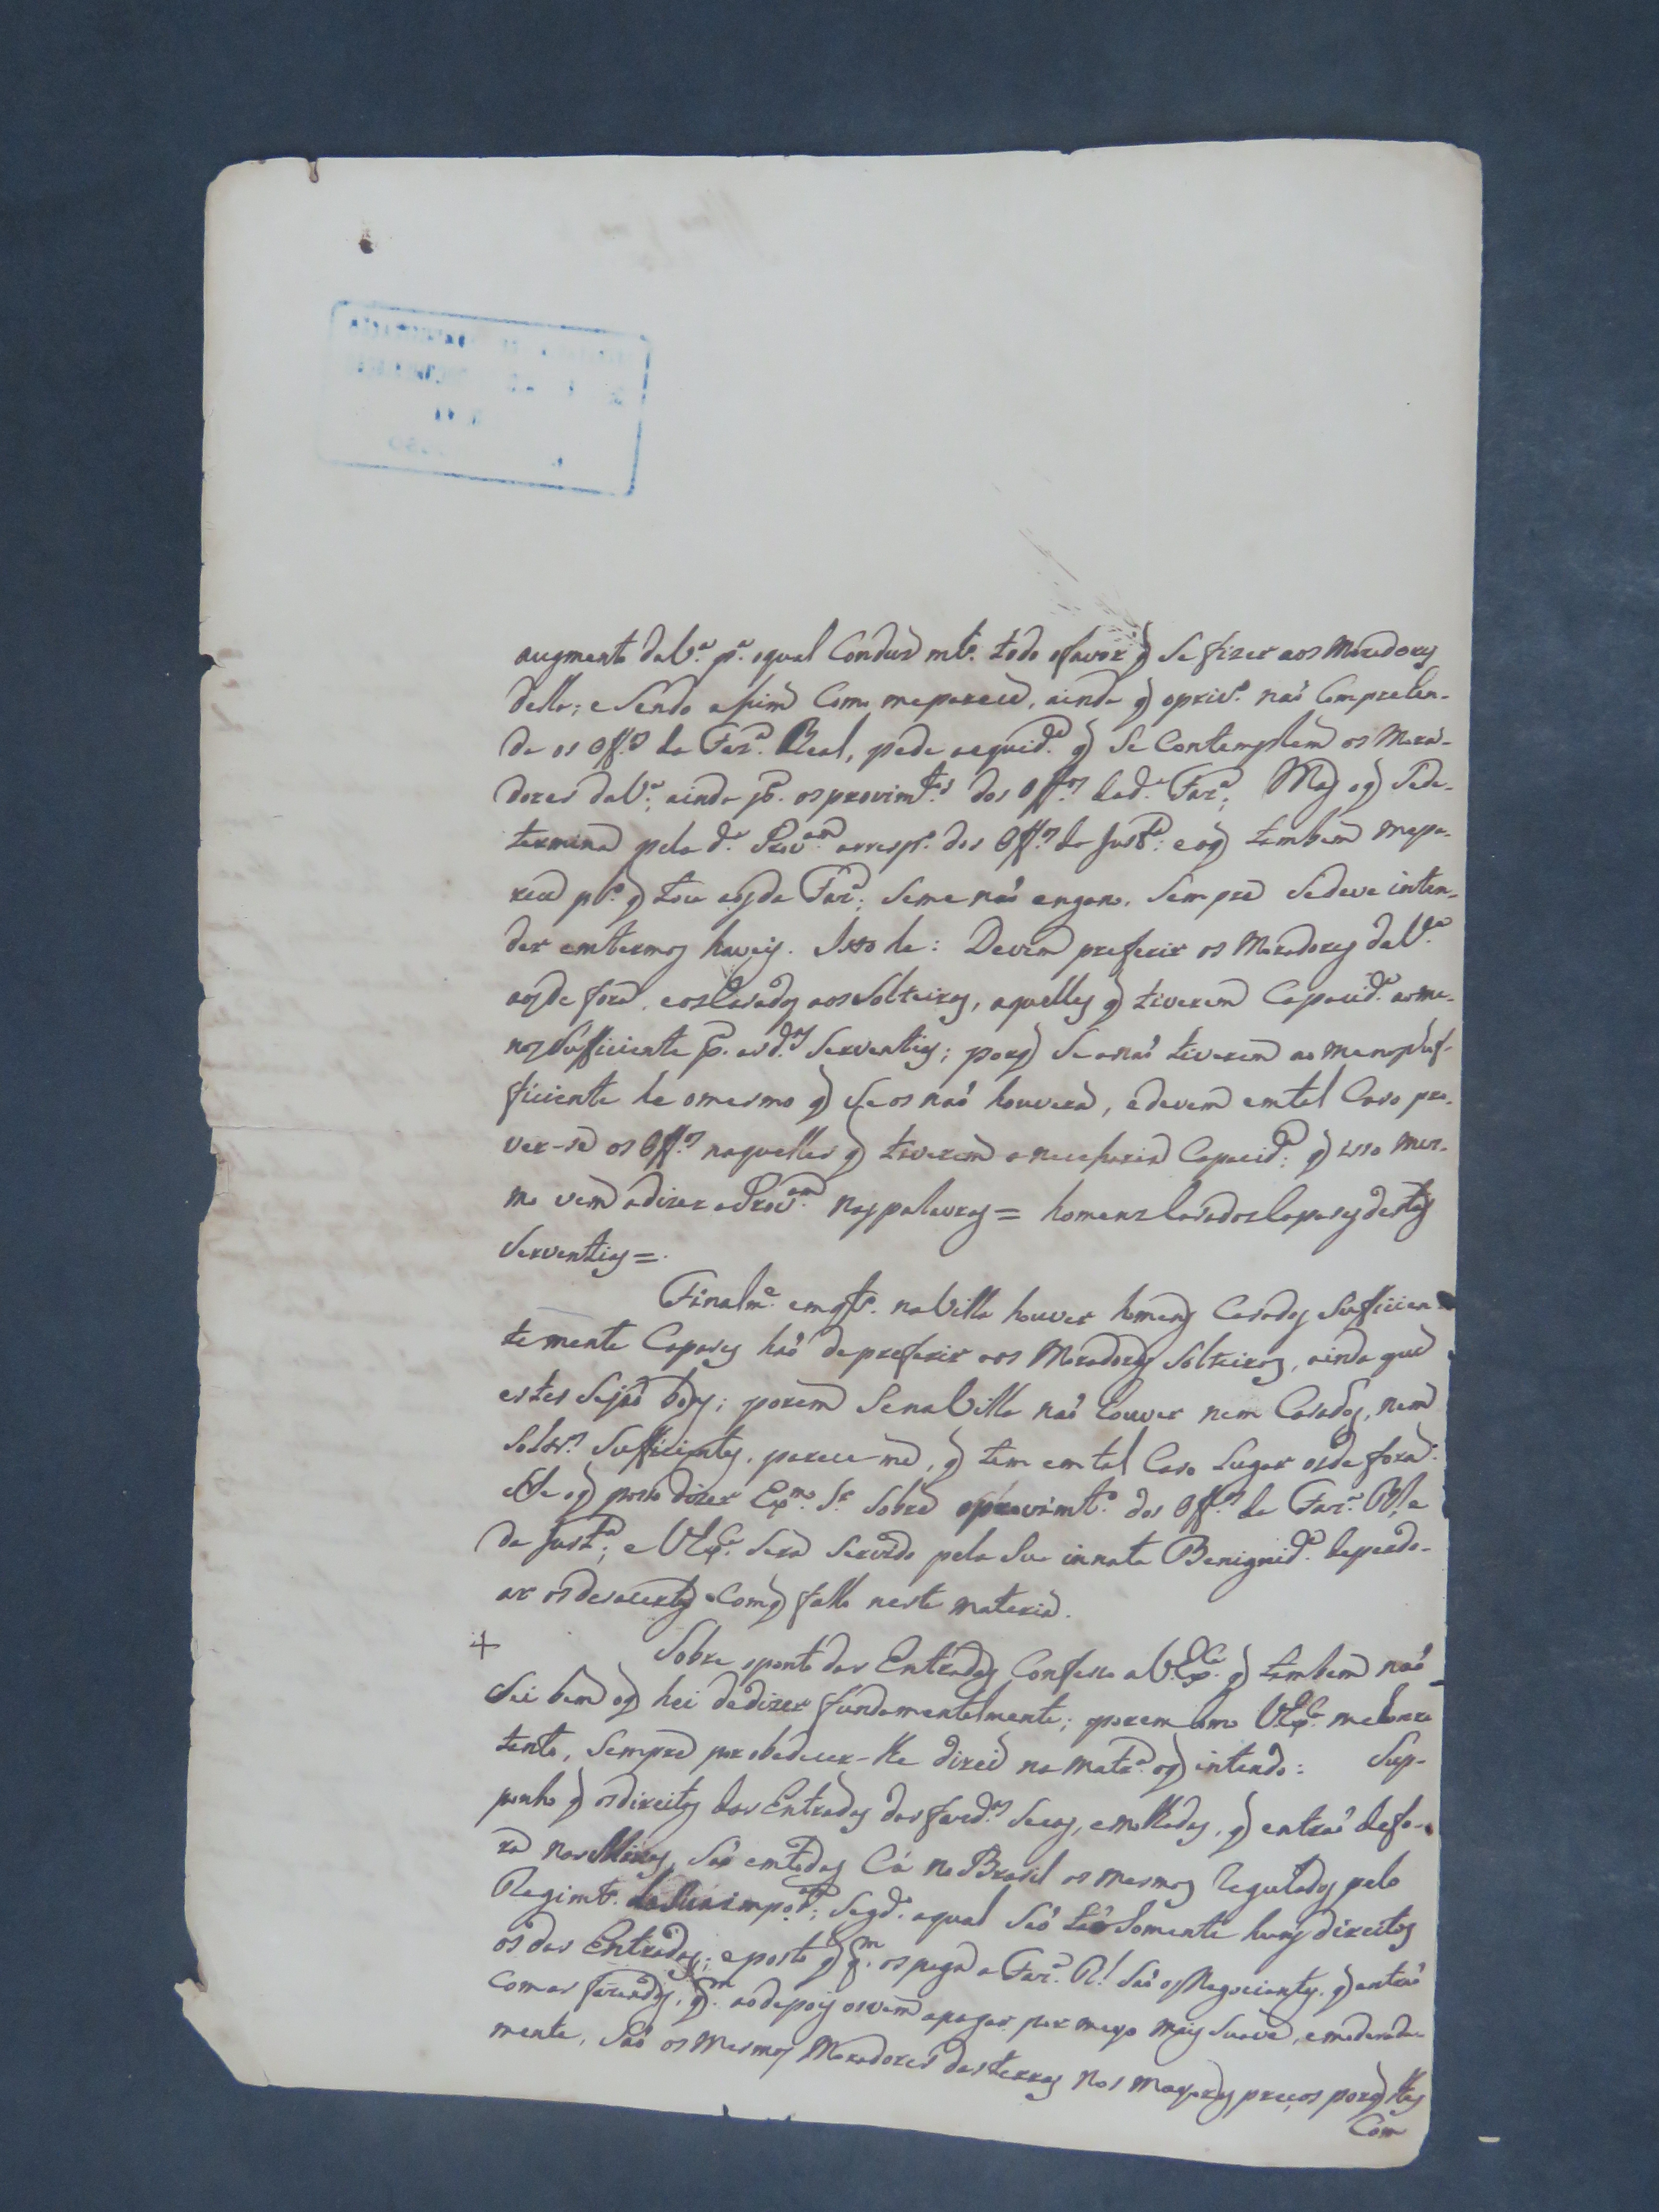 augmento da V.ª p.ª o qual Conduz m.to todo o favor q̃ Se fizer aos Moradores
della; e Sendo assim Como me parece, ainda q̃ o priv.º naó Comprehen-
da os Off.os da Faz.ª Real, pede a equid.e q̃ Se Contemplem os Mora-
dores da V.ª; ainda p.ª os provim.tos dos Off.os da d.ª Faz.ª; Mas o q̃ Se de-
termina pela d.ª Prov.am a resp.to dos Off.os de Just.ª: e o q̃ tambem me pa-
rece p.ª q̃ toca aos da Faz.ª; Se me naó engano, Sempre Se deve inten-
der em termos haveis. Isso he: Devem preferir os Moradores da V.ª
aos de fora, e os Casados aos Solteiros, aquelles q̃ tiverem Capacid.e ao me-
nos Sufficiente p.ª as d.as Serventias; porq̃ Se a naó tiverem ao menos suf-
ficiente he o mesmo q̃ Se os naó houvera, e devem em tal Caso pro-
ver-se os Off.os naquelles q̃ tiverem a necessaria Capacid.e; q̃ isso mes-
mo vem a dizer a Prov.am nas palavras = homens Casados Capases destas
Serventias =.
Finalm.e em q.to na Villa houver homens Casados Sufficien-
temente Capases haó de preferir aos Moradores Solteiros, ainda que
estes Sejaó bons; porem Se na Villa naó houver nem Casados, nem
Solt.ros Sufficientes, parece-me, q̃ tem em tal Caso Lugar os de fora:
He o q̃ posso dizer Ex.mo S.r Sobre o provim.to dos Off.os de Faz.ª R.l e
de Just.ª; e V Ex.ª Será Servido pela Sua innata Benignid.e de perdo-
ar os desacertos Com q̃ fallo nesta materia.
+ Sobre o ponto das Entradas Confesso a V. Ex.ª q̃ tambem naó
Sei bem o q̃ hei de dizer fundamentalmente; porem Como V Ex.ª me honra
tanto, Sempre por obedecer-lhe direi na mat.ª o q̃ intendo: Sup-
ponho q̃ os direitos das Entradas das fazd.as Secas, e molhadas, q̃ entraó de fo-
ra nas Minas, Saó em todas Cá no Brasil os mesmos regulados pelo
Regim.to da Sua impoz.am; Segd.º o qual Saó taó Somente huns direitos
os das Entradas; e posto q̃ q.m os paga a Faz.ª R.l Saó os Negociantes, q̃ entraó
Com as fazendas, q.m ao depois os vem a pagar por meyo mais Suave, e moderada-
mente, Saó os mesmos Moradores das terras nos mayores preços porq̃ lhes
Com